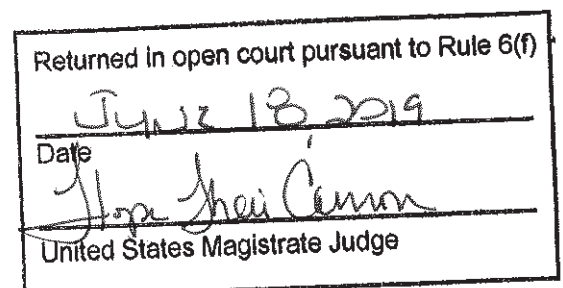 Returned in open court pursuant to Rule 6(f)
June 18, 2019
Date
Hope Thai Cannon
United States Magistrate Judge